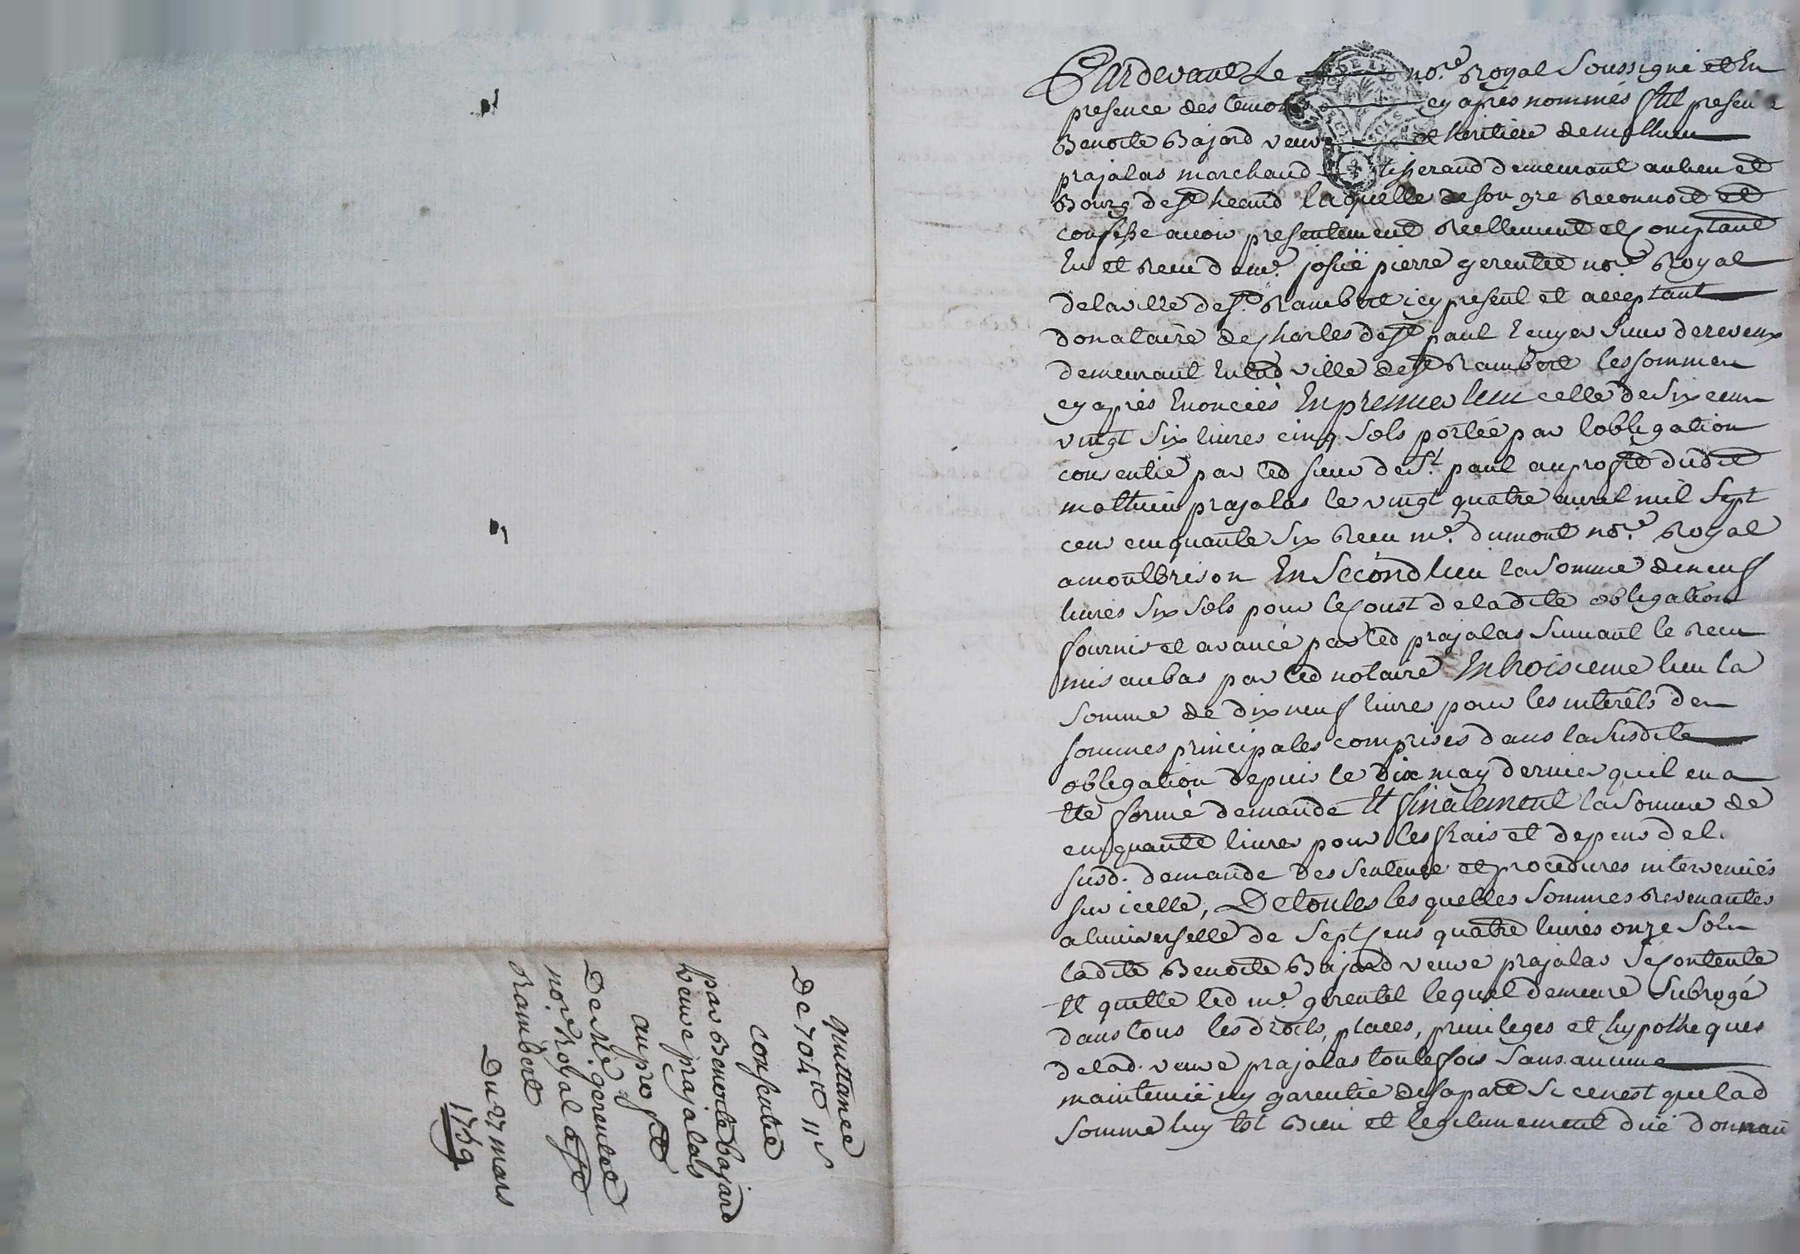 Pardevant Le no.re Royal Soussigné et En
presence des temoins cy apres nommés fut presente
Benoite Bajard veuve et heritiere de mathieu
prajalas marchand tisserand demeurant au lieu et
Bourg de St heand laquelle de son gre reconnoit et
confesse avoir presentement reellement et Comptant
Eu et recu de me. josué pierre gerentet no.re Royal
de la ville de St. Rambert icy present et acceptant
donataire de Charles de St paul Ecuyer sieur de reveux
demeurant en lad ville de St Rambert les sommes
cy apres Enoncées En premier lieu celle de Six cens
vingt Six livres cinq Sols portée par lobligation
consentie par led sieur de St. paul au profit dudit
mathieu prajalas le vingt quatre avril mil Sept
cens cinquante Six recu me. dumont no.re Royal
a montbrison En Second lieu la Somme de neuf
livres Six Sols pour le Coust de ladite obligation
fournis et avancé par led prajalas Suivant le recu
mis au bas par led notaire En troisieme lieu la
Somme de dix neuf livres pour les interets des
sommes principales comprises dans la Susdite
obligation depuis le dix may dernier quil en a
ete formé demande Et finalement la Somme de
cinquante livres pour les frais et depens de la
susd. demande des Sentence et procedures intervenües
sur icelle, De toutes les quelles Sommes revenantes
a luniverselle de Sept Cens quatre livres onze Sols
ladite Benoite Bajard veuve prajalas Se Contente
Et quitte led me. gerentet lequel demeure Subrogé
dans tous les droits, places, privileges et hypotheques
de lad. veuve prajalas toutefois Sans aucune
maintenüe ny garentie de sa part Si ce nest que lad
Somme luy est Bien et legitimement düe donnant
quittance
De 704 tt 11 s
consentie
par Benoite bajard
veuve prajalas
au profit
De Me. gerentet
no.re Royal a St
Rambert
Du 27 mars
1759